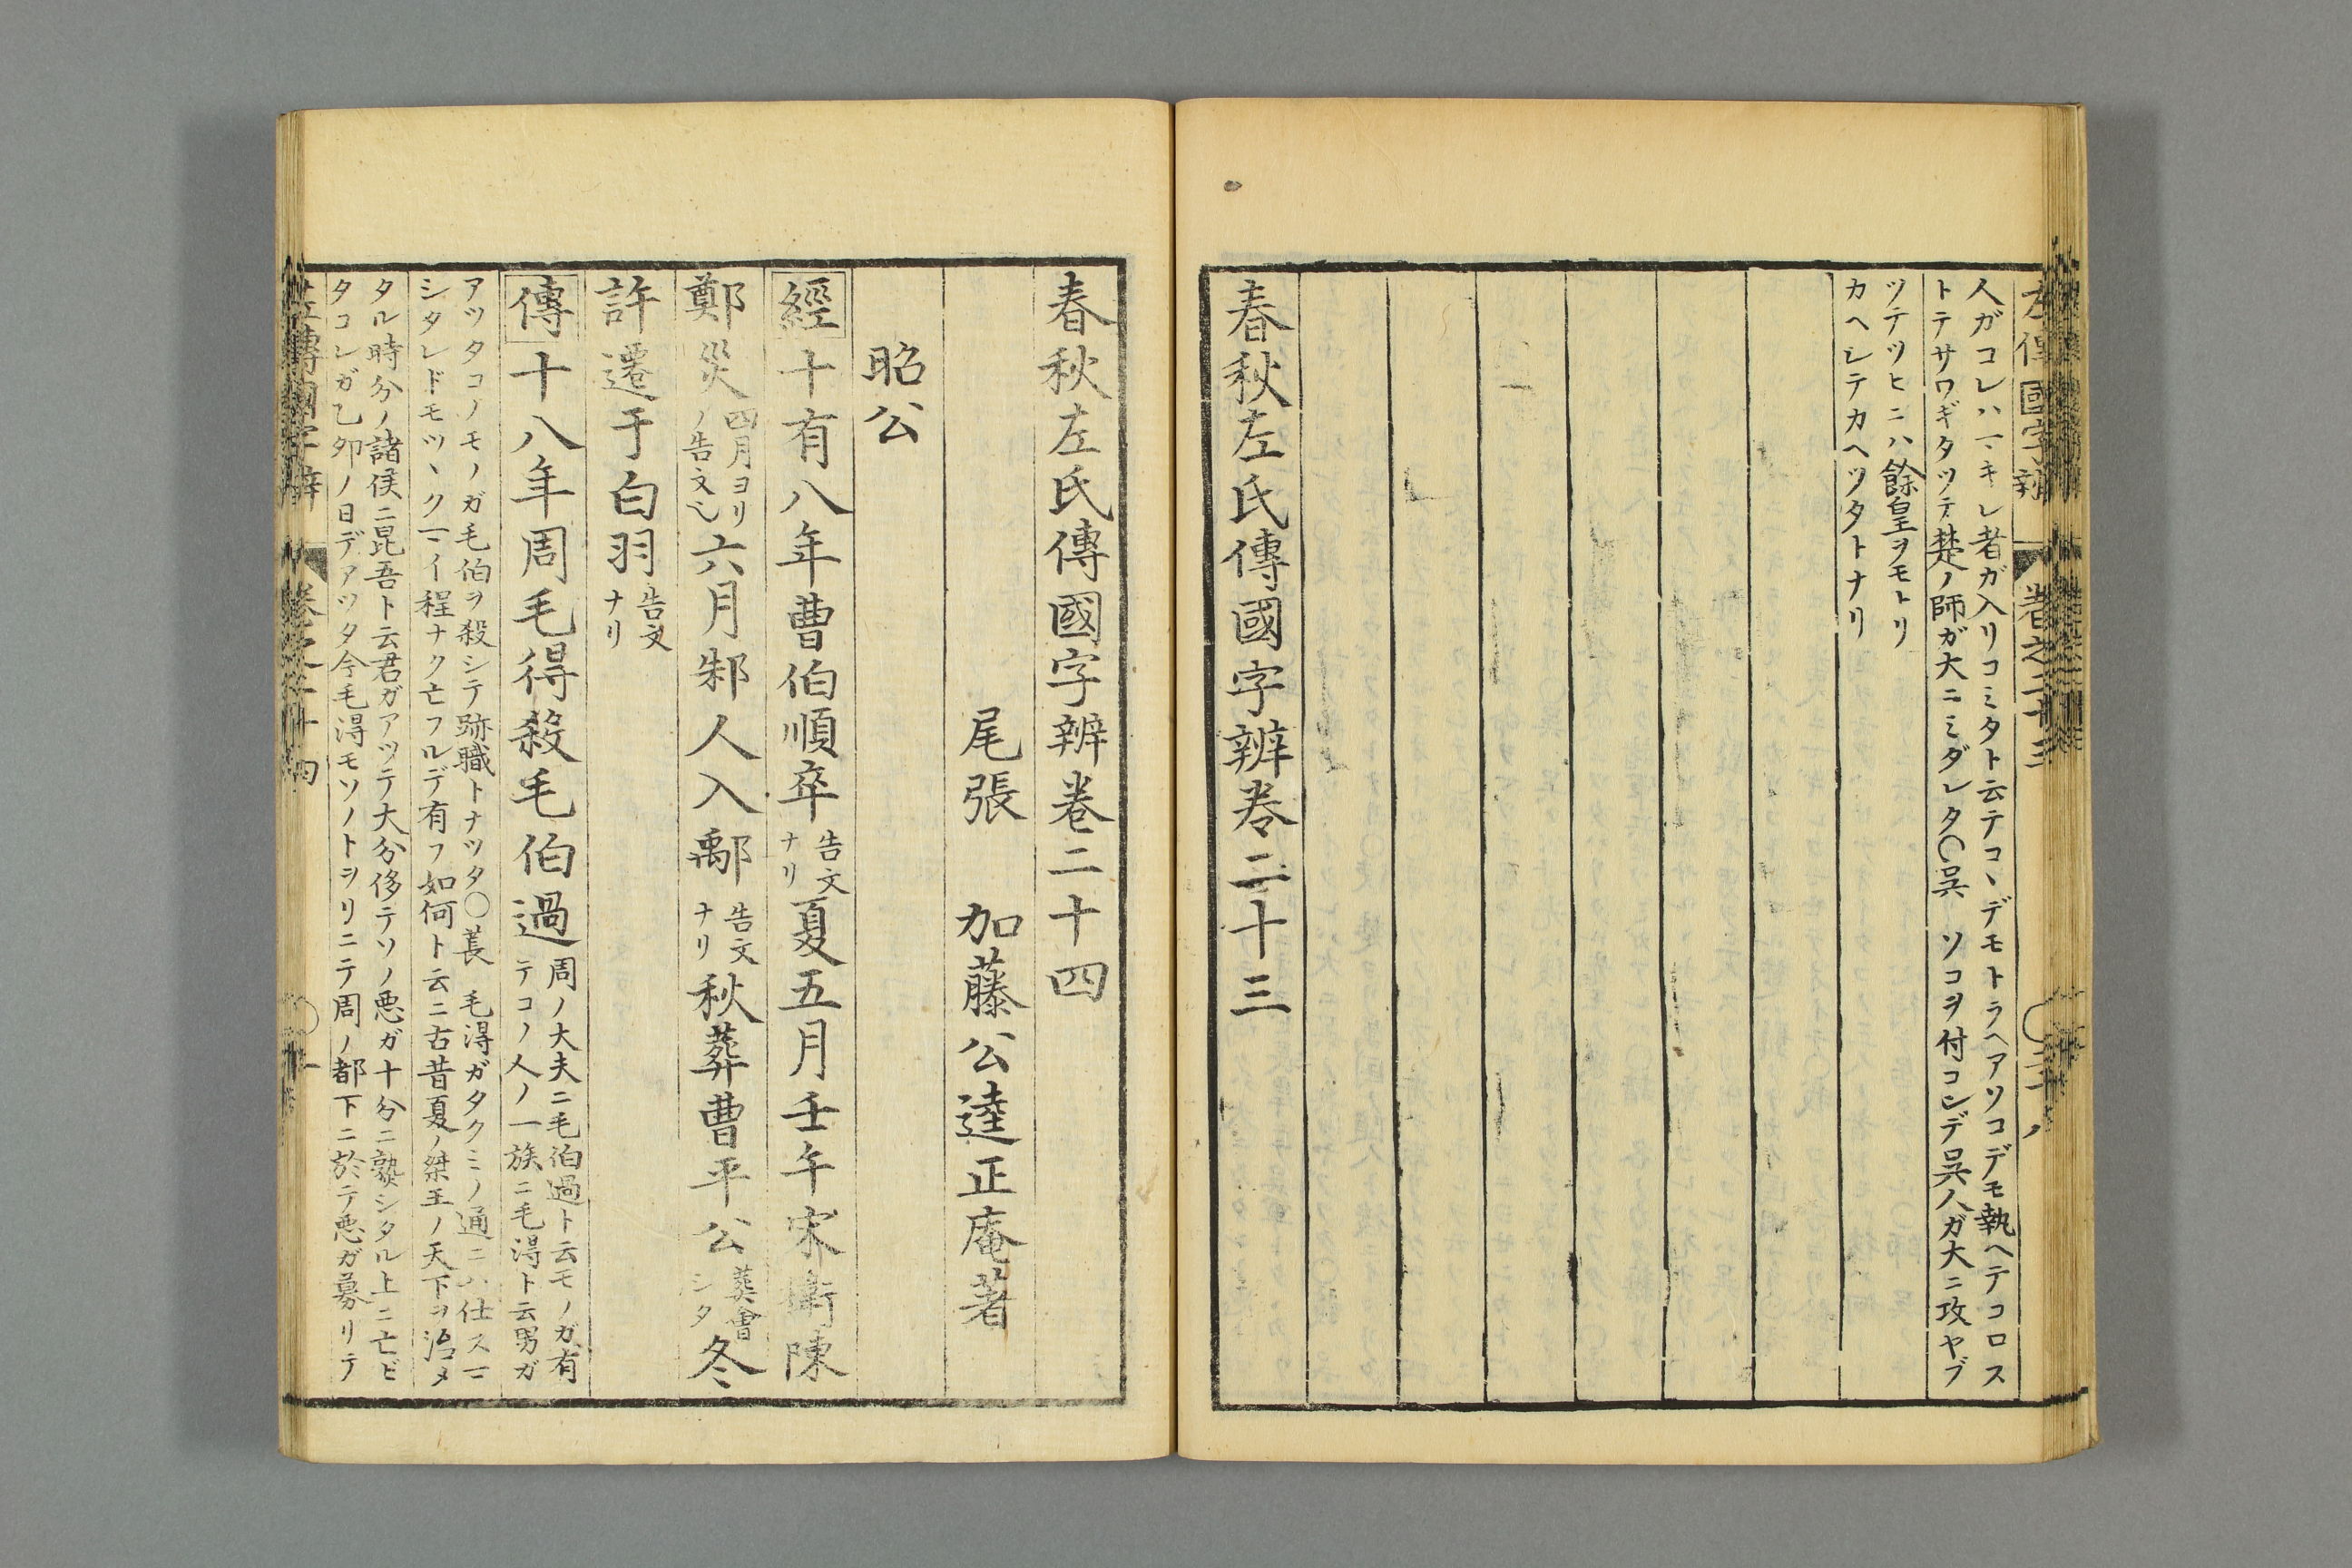 左傳國字辨 卷之二十三
人ガコレハマキレ者ガ入リコミタト云テコヽデモトラヘアソコデモ執ヘテコロス
トテサワギタツテ楚ノ師ガ大ニミダレタ〇呉 ソコヲ付コンデ呉人ガ大ニ攻ヤブ
ツテツヒニハ餘皇ヲモトリ
カヘシテカヘツタトナリ
春秋左氏傳國字辨卷二十三
春秋左氏傳國字辨卷二十四
尾張 加藤公逵正庵著
昭公
經十有八年曹伯順卒告文ナリ夏五月壬午宋衛陳
鄭災四月ヨリノ告文也六月邾人入鄅告文ナリ秋葬曹平公葬會シタ冬
許遷于白羽告文ナリ
傳十八年周毛得殺毛伯過周ノ大夫ニ毛伯過ト云モノガ有テコノ人ノ一族ニ毛得ト云男ガ
アツタコノモノガ毛伯ヲ殺シテ跡職トナツタ〇萇 毛得ガタクミノ通ニハ仕スマ
シタレドモツヽクマイ程ナク亡フルデ有フ如何ト云ニ古昔夏ノ桀王ノ天下ヲ治メ
タル時分ノ諸侯ニ昆吾ト云君ガアツテ大分侈テソノ悪ガ十分ニ熟シタル上ニ亡ビ
タコレガ乙卯ノ日デアツタ今毛得モソノトヲリニテ周ノ都下ニ於テ悪ガ募リテ
左傳國字辨 卷之二十四 〇一